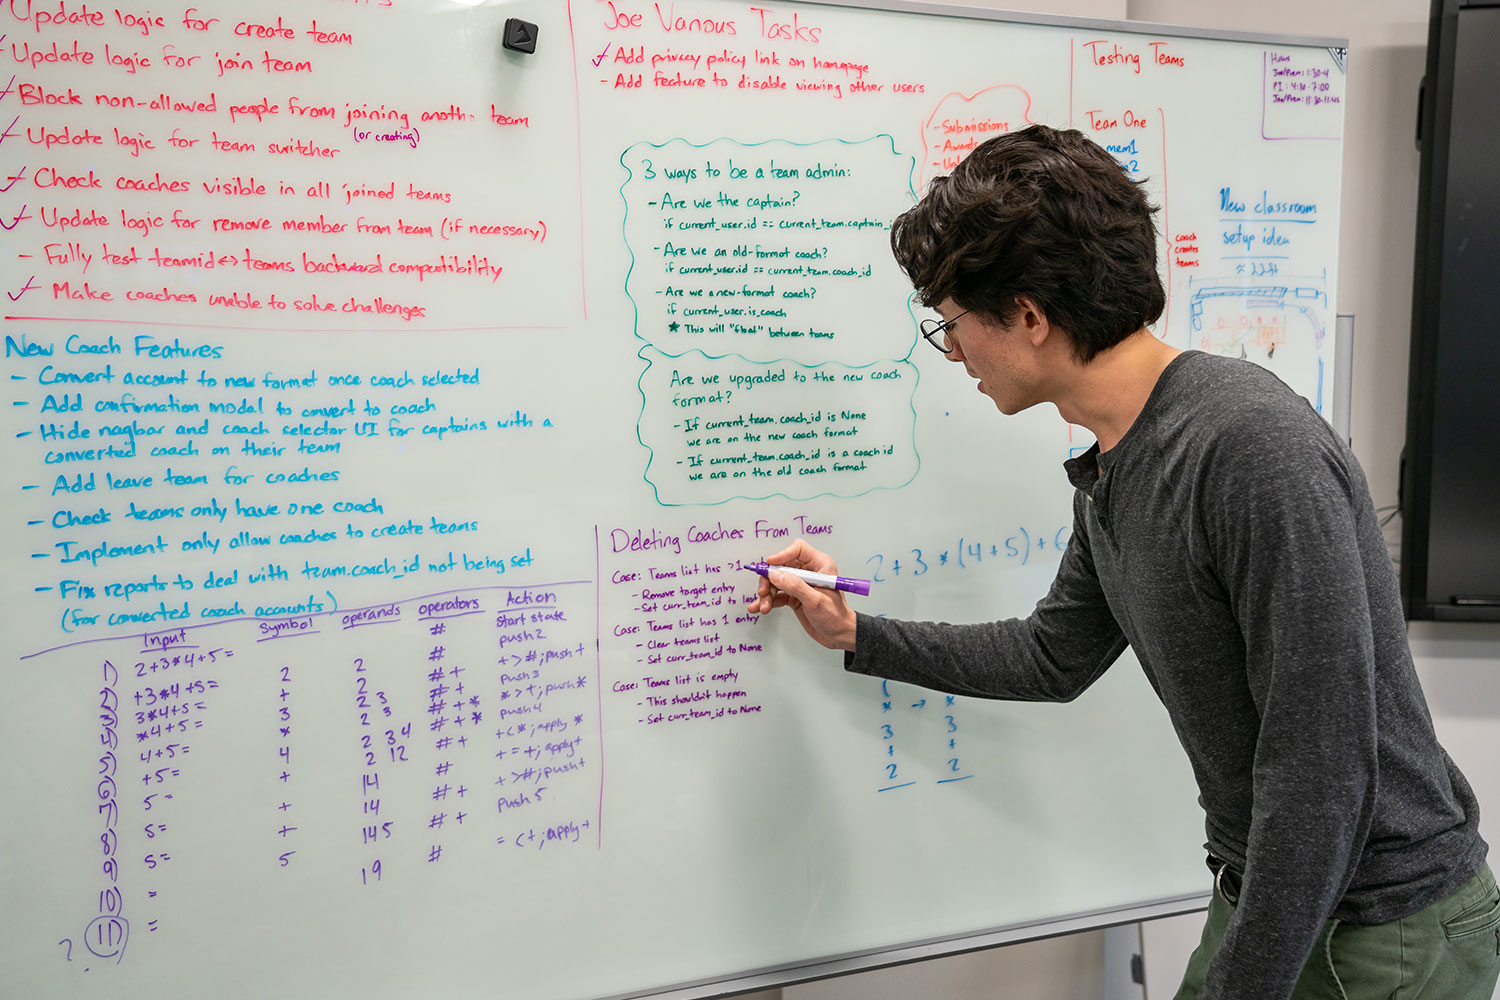 Update logic for create team
Update logic for join team
Block non-allowed people from joining anoth team
(or creating)
Update logic for team switcher
Check coaches visible in all joined teams
Update logic for remove member from team (if necessary)
- Fully test teamid<->teams backward compatibility
Make coaches unable to solve challenges
New Coach Features
- Convert account to new format once coach selected
- Add confirmation modal to convert to coach
- Hide nagbar and coach selector UI for captains with a
converted coach on their team
- Add leave team for coaches
- Check teams only have one coach
- Implement only allow coaches to create teams
- Fix reports to deal with team.coach_id not being set
(for converted coach accounts)
Input Symbol operands operators Action
1) 2+3*4+5= # start state
2) +3*4+5= 2 2 # push 2
3) 3*4+5= + 2 # + + > #; push +
4) *4+5= 3 2 3 # + push 3
5) 4+5= * 2 3 # + * * > +; push *
6) +5= 4 2 3 4 # + * push 4
7) 5= + 2 12 # + + < *; apply *
8) 5= + 14 # + = +; apply +
9) 5= + 14 # + + > #; push +
10) = 5 14 5 # + push 5
11) = 19 # = < +; apply +
?
Joe Various Tasks
Add privacy policy link on homepage
- Add feature to disable viewing other users
3 ways to be a team admin:
- Are we the captain?
if current_user.id == current_team.captain_i
- Are we an old-format coach?
if current_user.id == current_team.coach_id
- Are we a new-format coach?
if current_user.is_coach
* This will "float" between teams
Are we upgraded to the new coach
format?
- If current_team.coach_id is None
we are on the new coach format
- If current_team.coach_id is a coach id
we are on the old coach format
- Submissions
- Awards
Deleting Coaches From Teams
Case: Teams list has >1
- Remove target entry
- Set curr_team_id to last
Case: Teams list has 1 entry
- Clear teams list
- Set curr_team_id to None
Case: Teams list is empty
- This shouldn't happen
- Set curr_team_id to None
2 + 3 * (4 + 5) + 6
* → *
3 3
+ +
2 2
Testing Teams
Team One
mem1
2
coach
creates
teams
Hours
PI: 4:30-7:00
New classroom
setup idea
≈ 22ft